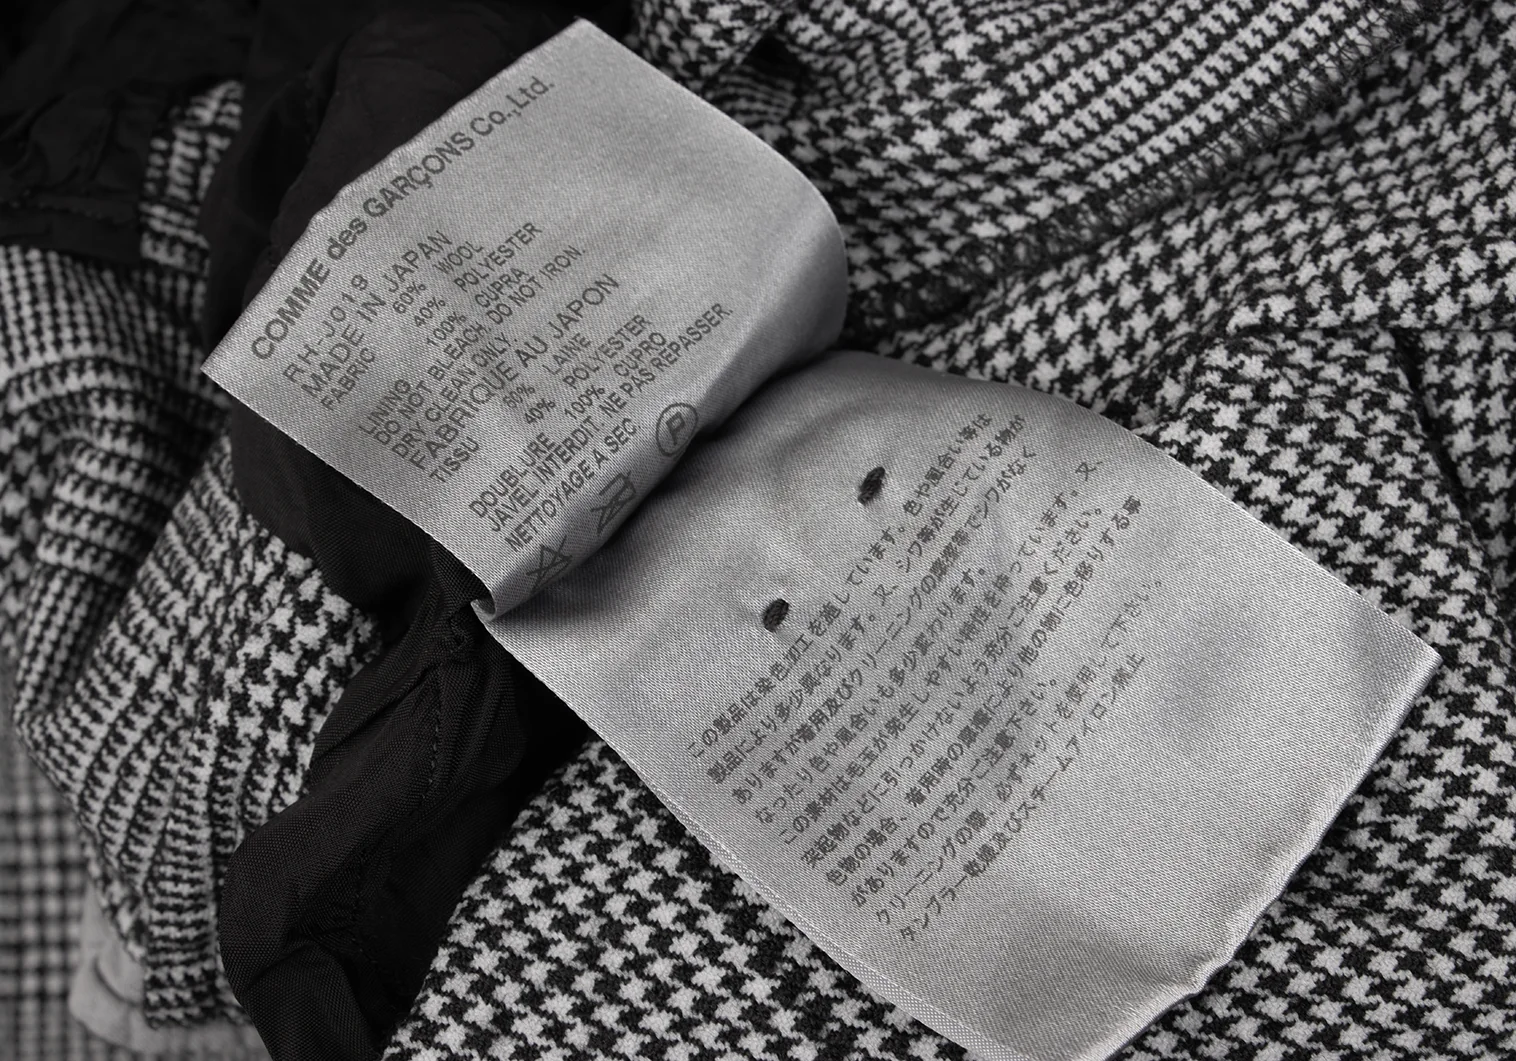 COMME des GARÇONS Co.,Ltd.
RH-J019
MADE IN JAPAN
FABRIC 60% WOOL
40% POLYESTER
LINING 100% CUPRA
DO NOT BLEACH, DO NOT IRON.
DRY CLEAN ONLY
FABRIQUE AU JAPON
TISSU 60% LAINE
40% POLYESTER
DOUBLURE 100% CUPRO
JAVEL INTERDIT. NE PAS REPASSER.
NETTOYAGE A SEC
P
この製品は染色加工を施しています。色や風合い等は
製品により多少異なります。又、シワ等が生じている物が
ありますが着用及びクリーニングの摩擦等でシワがなく
なったり色や風合いも多少変わります。
この素材は毛玉が発生しやすい特性を持っています。又、
突起物などに引っかけないよう充分ご注意ください。
色物の場合、着用時の摩擦により他の物に色移りする事
がありますので充分ご注意下さい。
クリーニングの際、必ずネットを使用して下さい。
タンブラー乾燥及びスチームアイロン禁止